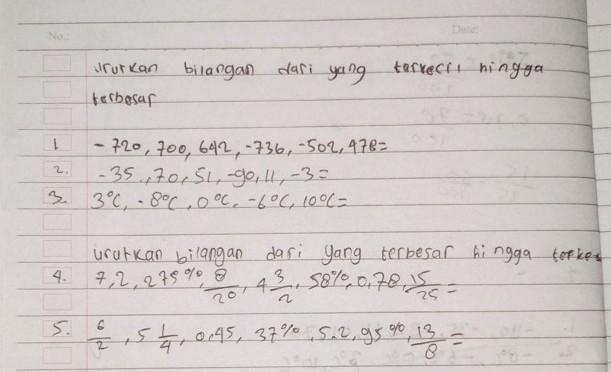 No.: Date:
urutkan bilangan dari yang terkecil hingga
terbesar
1 -720, 700, 642, -736, -502, 478=
2. -35, 70, 51, -90, 11, -3=
3. 3°C, -8°C, 0°C, -6°C, 10°C=
urutkan bilangan dari yang terbesar hingga terke
4. 7,2, 275%, 8/20, 4 3/2, 58%, 0,78, 15/25=
5. 6/2, 5 1/4, 0,45, 37%, 5.2, 95%, 13/8=